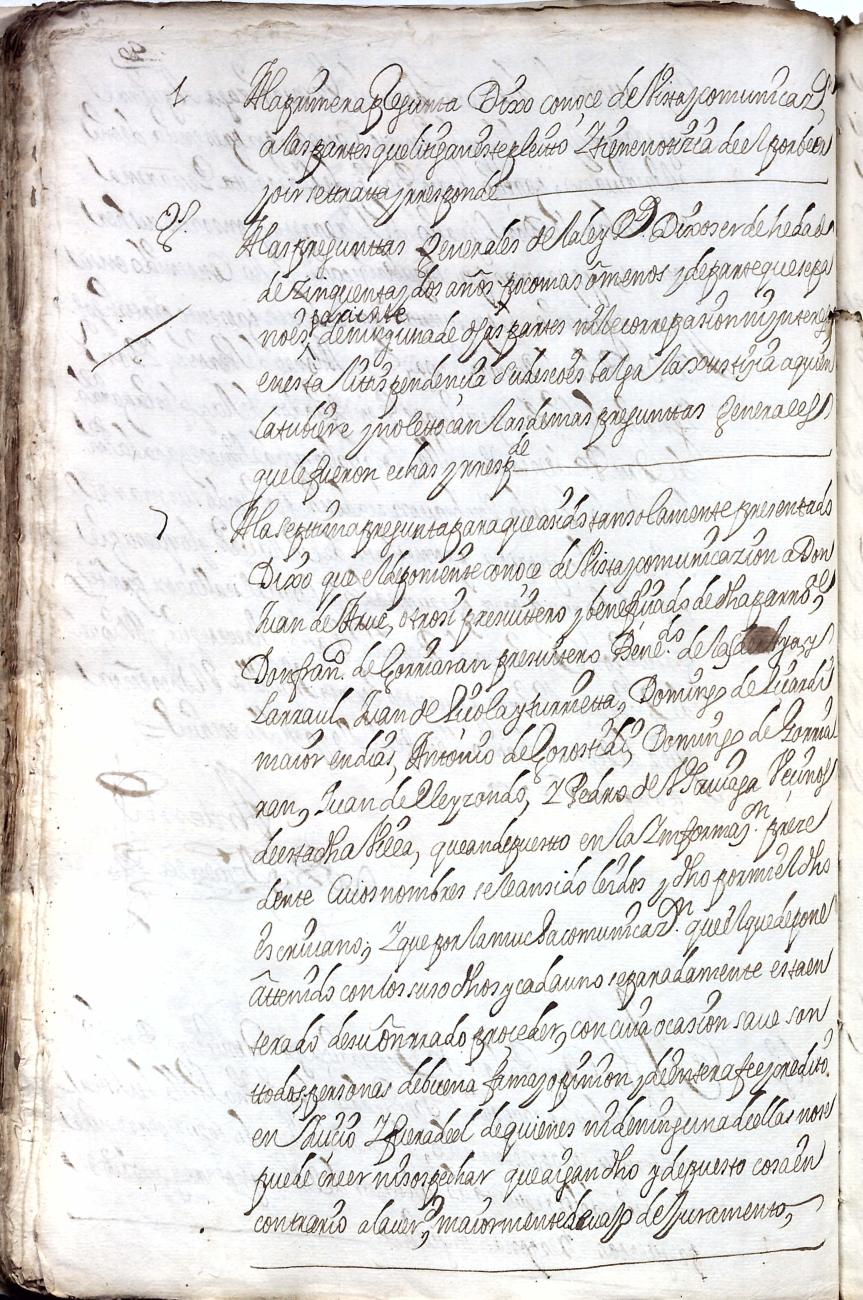 1 A la primera pregunta Dixo conoce de Vista y comunicaz.on
a las partes que litigan este pleito Y tiene notizia de el por ber
y oir se tratta y responde
G.s A las preguntas Generales de la ley Dixo ser de hedad
de Zinquenta y dos años poco mas o menos y de parte que sepa
pariente
no es de ninguna de dhas partes ni le corre pasion ni ynteres
en esta litis pendencia y su deseo es balga la xustizia a quien
la tubiere y no le tocan las demas preguntas Generales
que le fueron echas y rresp.de
7 A la septima pregunta para que a sido tan solamente presentado
Dixo que el deponiente conoce de Vista y comunicazion a Don
Juan de presvitero y beneficiado de dha parroq.l
Don fran.co de Gorriaran presvitero Benef.do de las de
Larraul, Juan de Domingo de
maior en dias, Antonio de Gorostidi, Domingo de Gorria
ran, Juan de Eleyzondo, Y Pedro de Vecinos
de esta dha Villa, que an depuesto en la Ynformaz.on prece
dente Cuios nombres se le an sido leidos y dho por mi el dho
Escrivano; Y que por la mucha comunicaz.on que el que depone
a ttenido con los suso dhos y cada uno separadamente esta en
terado de su onrrado proceder, con cuia ocasion save son
ttodos personas de buena fama y opinion y de entera fee y credito
en Juicio Y fuera de el de quienes ni de ninguna de ellas no se
puede creer ni sospechar que aigan dho y depuesto cosa en
contrario a la verd. maiormente de vajo de Juramento,